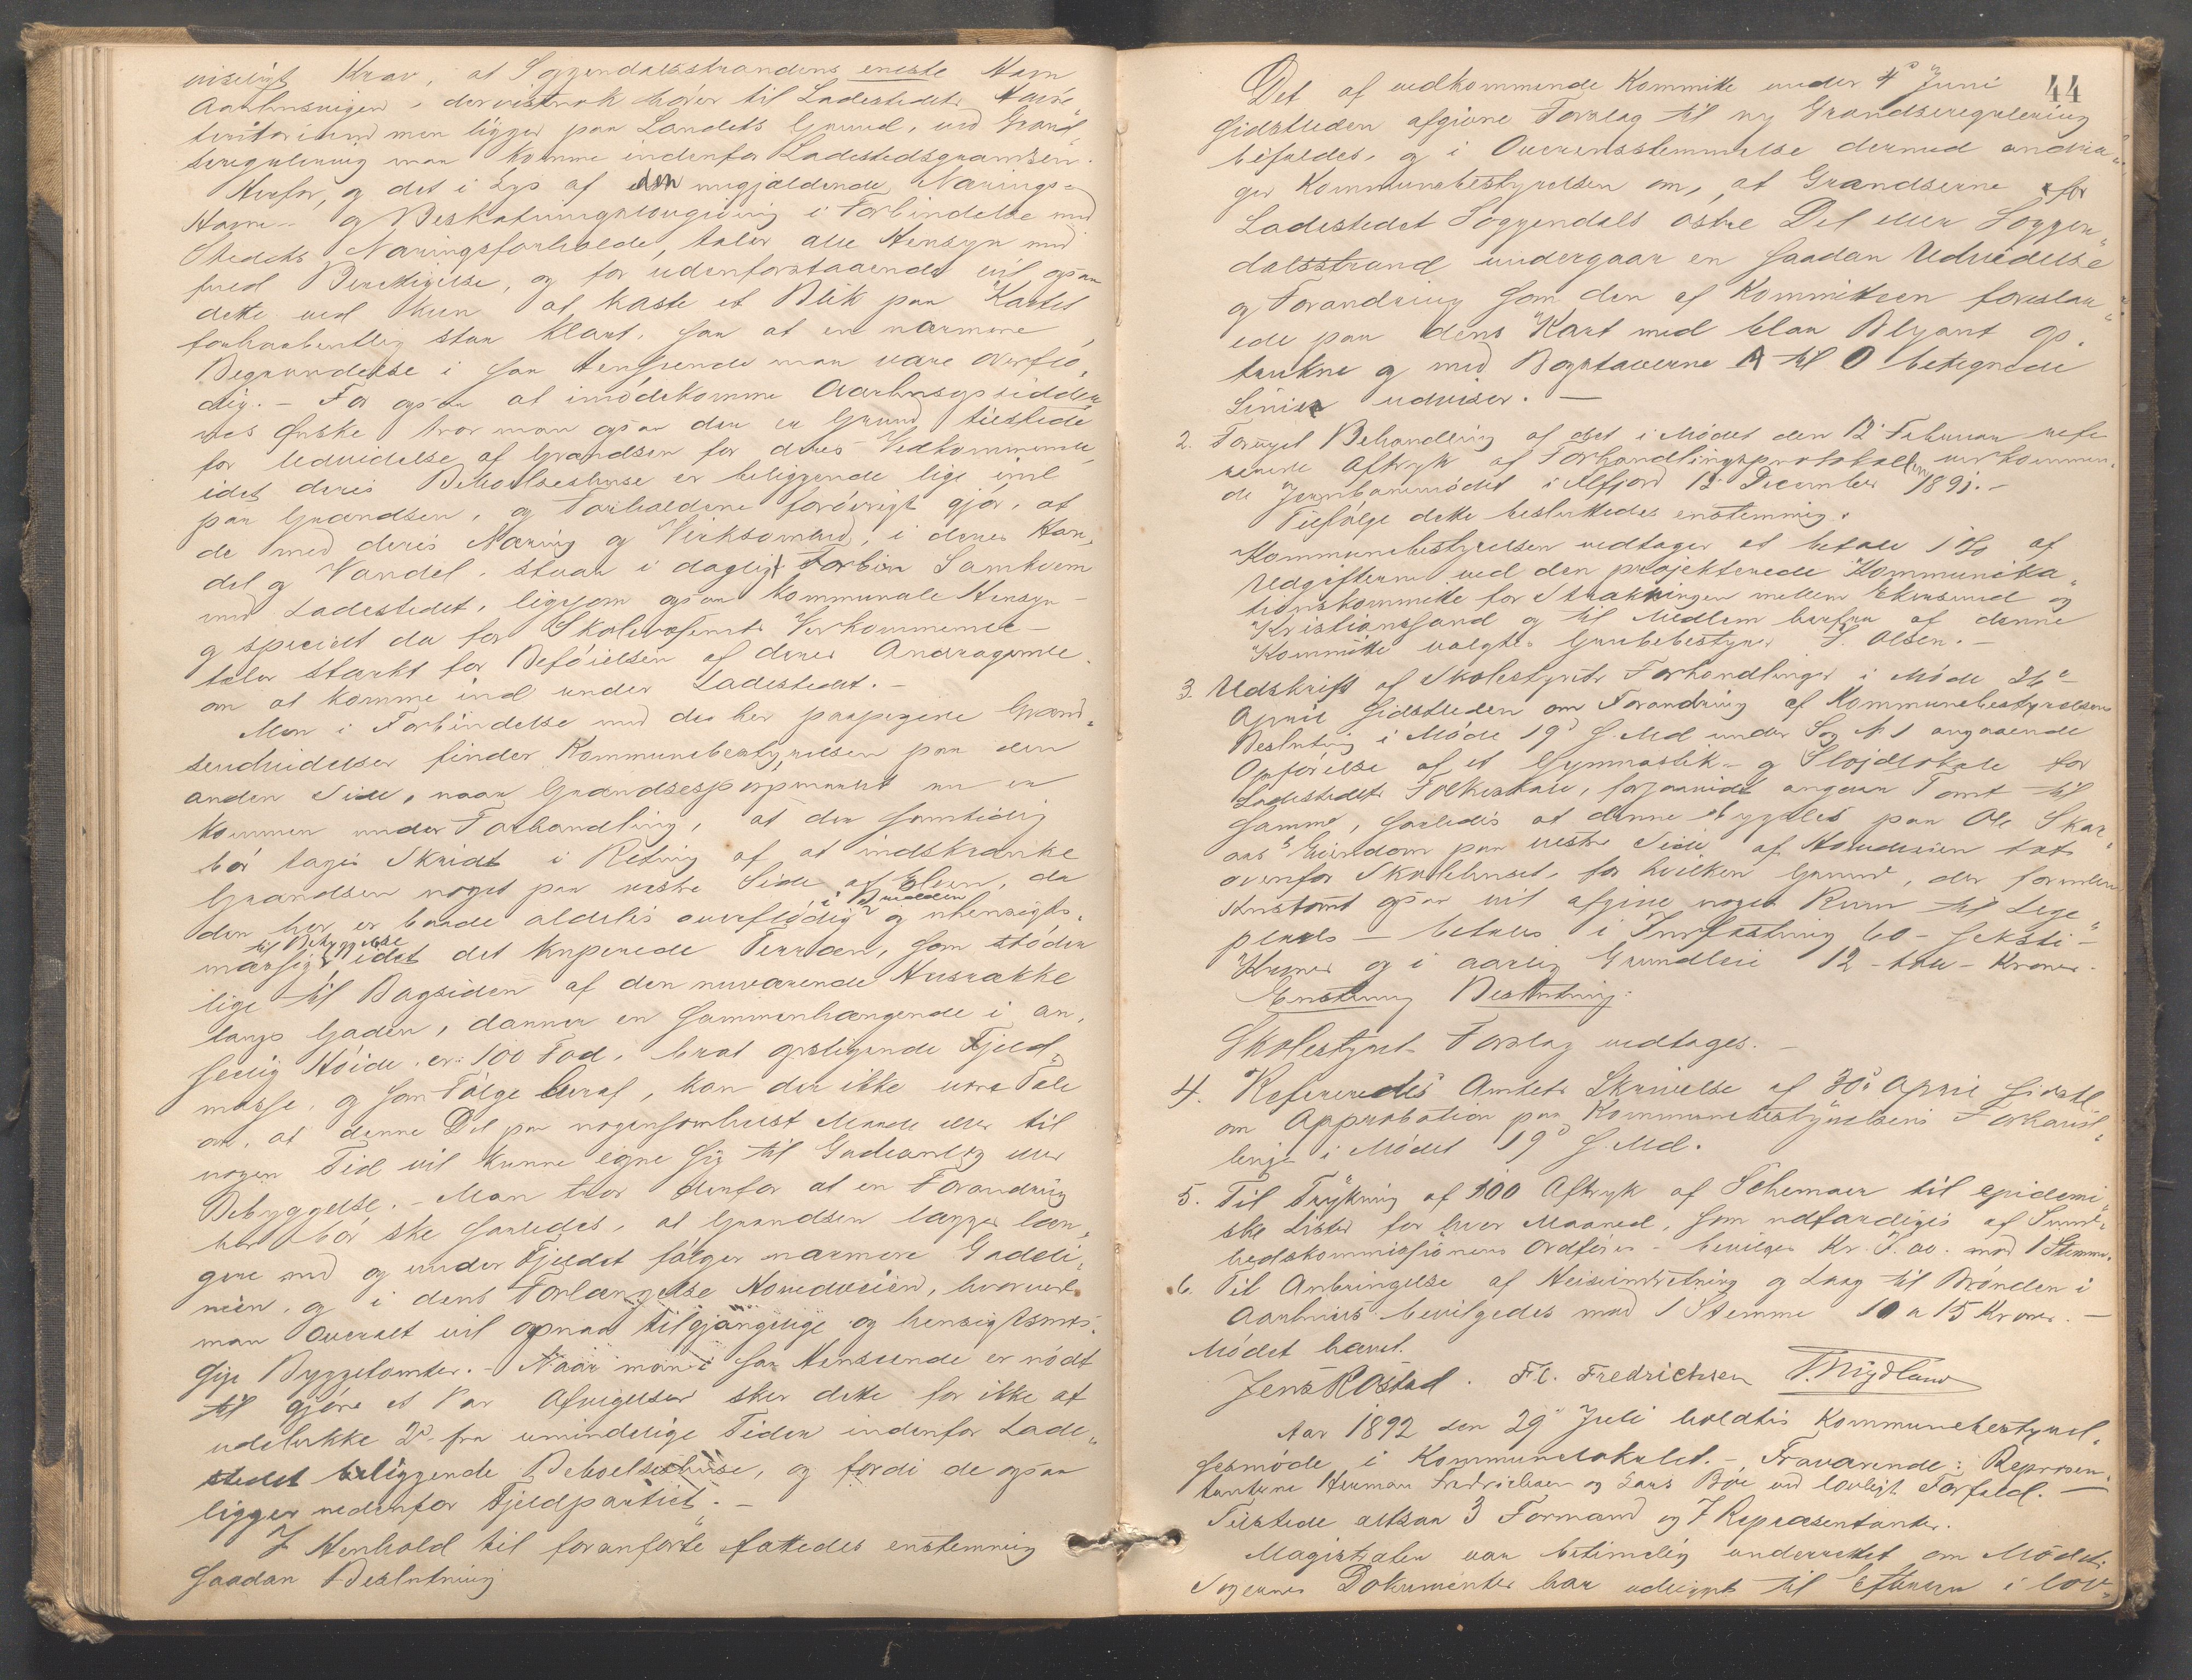 viseligt Krav, at Soggendalsstrandens eneste Havn
Aarhusvigen, der vistnok hører til Ladestedets Havne-
territorium men ligger paa Landets Grund, ved Grænd-
seregulering maa komme indenfor Ladestedsgrændsen.
Herfor, og det i Lys af den nugjældende Nærings-
Havne- og Beskatningslovgivning i Forbindelse med
Stedets Næringsforholde, taler alle Hensyn med
fuld Berettigelse, og for udenforstaaende vil ogsaa
dette ved kun at kaste et Blik paa Kartet
forhaabentlig staa klart, saa at en nærmere
Begrundelse i saa Henseende maa være overflø-
dig. - For ogsaa at imødekomme Aarhusopsidder-
nes Ønske tror man ogsaa der er Grund tilstede
for Udvidelse af Grændsen for deres Vedkommende,
idet deres Beboelseshuse er beliggende lige ind
paa Grændsen, og Forholdene forøvrigt gjør, at
de med deres Næring og Virksomhed, i deres Han-
del og Vandel, staar i dagligt Forbin Samkvem
med Ladestedet, ligesom ogsaa kommunale Hensyn
og specielt da for Skolevæsenets Verkommende -
taler stærkt for Beføielsen af deres Andragende
om at komme ind under Ladestedet. -
Men i Forbindelse med de her paapegede Grænd-
seudvidelser finder Kommunebestyrelsen paa den
anden Side, naar Grændsespørgsmaalet nu er
kommen under Forhandling, at der samtidig
bør tages Skridt i Retning af at indskrænke
Grændsen noget paa vestre Side af Elven, da
den her er baade aldeles overflødig og uhensigts-
til Bebyggelse
mæssig, idet det kuperede Terræn, som støder
lige til Bagsiden af den nuværende Husrække
langs Gaden, danner en sammenhængende i an-
seelig Høide, er: 100 Fod, brat opstigende Fjeld-
masse, og som Følge heraf, kan der ikke være Tale
om, at denne Del paa nogensomhelst Maade eller til
nogen Tid vil kunne egne sig til Gadeanlæg eller
Bebyggelse. - Man tror derfor at en Forandring
her bør ske saaledes, at Grændsen lægges læn-
gere ned og under Fjeldet følger nærmere Gadeli-
nien, og i dens Forlængelse Hovedveien, hvorved
man overalt vil opnaa tilgjængelige og hensigtsmæs-
sige Byggetomter. - Naar man i saa Henseende er nødt
til gjøre et Par Afvigelser sker dette for ikke at
udelukke 2de fra umindelige Tider indenfor Lade-
stedet beliggende Beboelseshuse, og fordi de ogsaa
ligger nedenfor Fjeldpartiet. -
I Henhold til foranførte fattedes enstemmig
saadan Beslutning
44
Det af vedkommende Kommitte under 4de Juni
sidstleden afgivne Forslag til ny Grændseregulering
bifaldes, og i Overensstemmelse dermed andra-
ger Kommunebestyrelsen om, at Grændserne for
Ladestedet Soggendals østre Del eller Soggen-
dalsstrand undergaar en saadan Udvidelse
og Forandring som den af Kommitteen foreslaa-
ede paa dens Kart med blaa Blyant op-
trukne og med Bogstaverne A til O betegnede
Linier udviser. -
2. Foretaget Behandling af det i Mødet den 12 Februar refe-
rerede Aftryk af Forhandlingsprotokollen vedkommen-
de Jernbanemødet i Flekkefjord 15 December 1891. -
Tilfølge dette besluttedes enstemmig:
Kommunebestyrelsen vedtager at betale 1 % af
Udgifterne ved den projekterede Kommunika-
tionskommitte for Strækningen mellem Ekersund og
Kristianssand og til Medlem herfra af denne
Kommitte valgtes Grubebestyrer J. Olsen. -
3. Udskrift af Skolestyrets Forhandlinger i Møde 26de
April sidstleden om Forandring af Kommunebestyrelsens
Beslutning i Møde 19de s. Md under Sag N 1 angaaende
Opførelse af et Gymnastik- og Sløjdlokale for
Ladestedets Folkeskole, forsaavidt angaar Tomt til
samme, saaledes at denne bygges paa Ole Skar-
aas's Eiendom paa vestre Side af Hovedveien tæt
ovenfor Skolehuset, for hvilken Grund, der foruden
Hustomt ogsaa vil afgive noget Rum til Lege-
plads - betales i Indfæstning 60 - seksti -
Kroner og i aarlig Grundleie 12 - tolv - Kroner.
Enstemmig Beslutning:
Skolestyrets Forslag vedtages. -
4. Refereredes Amtets Skrivelse af 30te April sidstl.
om Approbation paa Kommunebestyrelsens Forhand-
linger i Mødet 19de s. Md.
5. Til Trykning af 100 Aftryk af Schemaer til epidemi-
ske Lister for hver Maaned, som udfærdiges af Sund-
hedskommissionens Ordfører - bevilges Kr. 7.00. mod 1 Stemme.
6. Til Anbringelse af Heiseindretning og Laag til Brønden i
Aarhus bevilgedes mod 1 Stemme 10 a 15 Kroner. -
Mødet hævet.
Jens K Østad. F.C. Fredrichsen T. Mydland
Aar 1892 den 29de Juli holdtes Kommunebestyrel-
sesmøde i Kommunelokalet. - Fraværende: Repræsen-
tanterne Herman Fredrichsen og Lars Bøe ved lovligt Forfald. -
Tilstede altsaa 3 Formænd og 7 Repræsentanter.
Magistraten var betimelig underrettet om Mødet.
Sagernes Dokumenter har udligget til Eftersyn i lov-